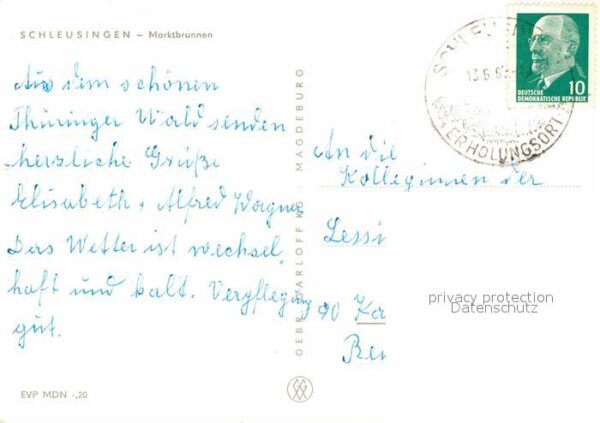 SCHLEUSINGEN – Marktbrunnen
Aus dem schönen
Thüringer Wald senden
herzliche Grüße
Elisabeth + Alfred Wagner
Das Wetter ist wechsel-
haft und kalt. Verpflegung
gut.
EVP MDN -,20
GEBR. GARLOFF KG · MAGDEBURG
SCHLEUSIN
13.6.6
ERHOLUNGSORT
10
DEUTSCHE
DEMOKRATISCHE REPUBLIK
An die
Kolleginnen der
Lessi
90 Kar
privacy protection
Datenschutz